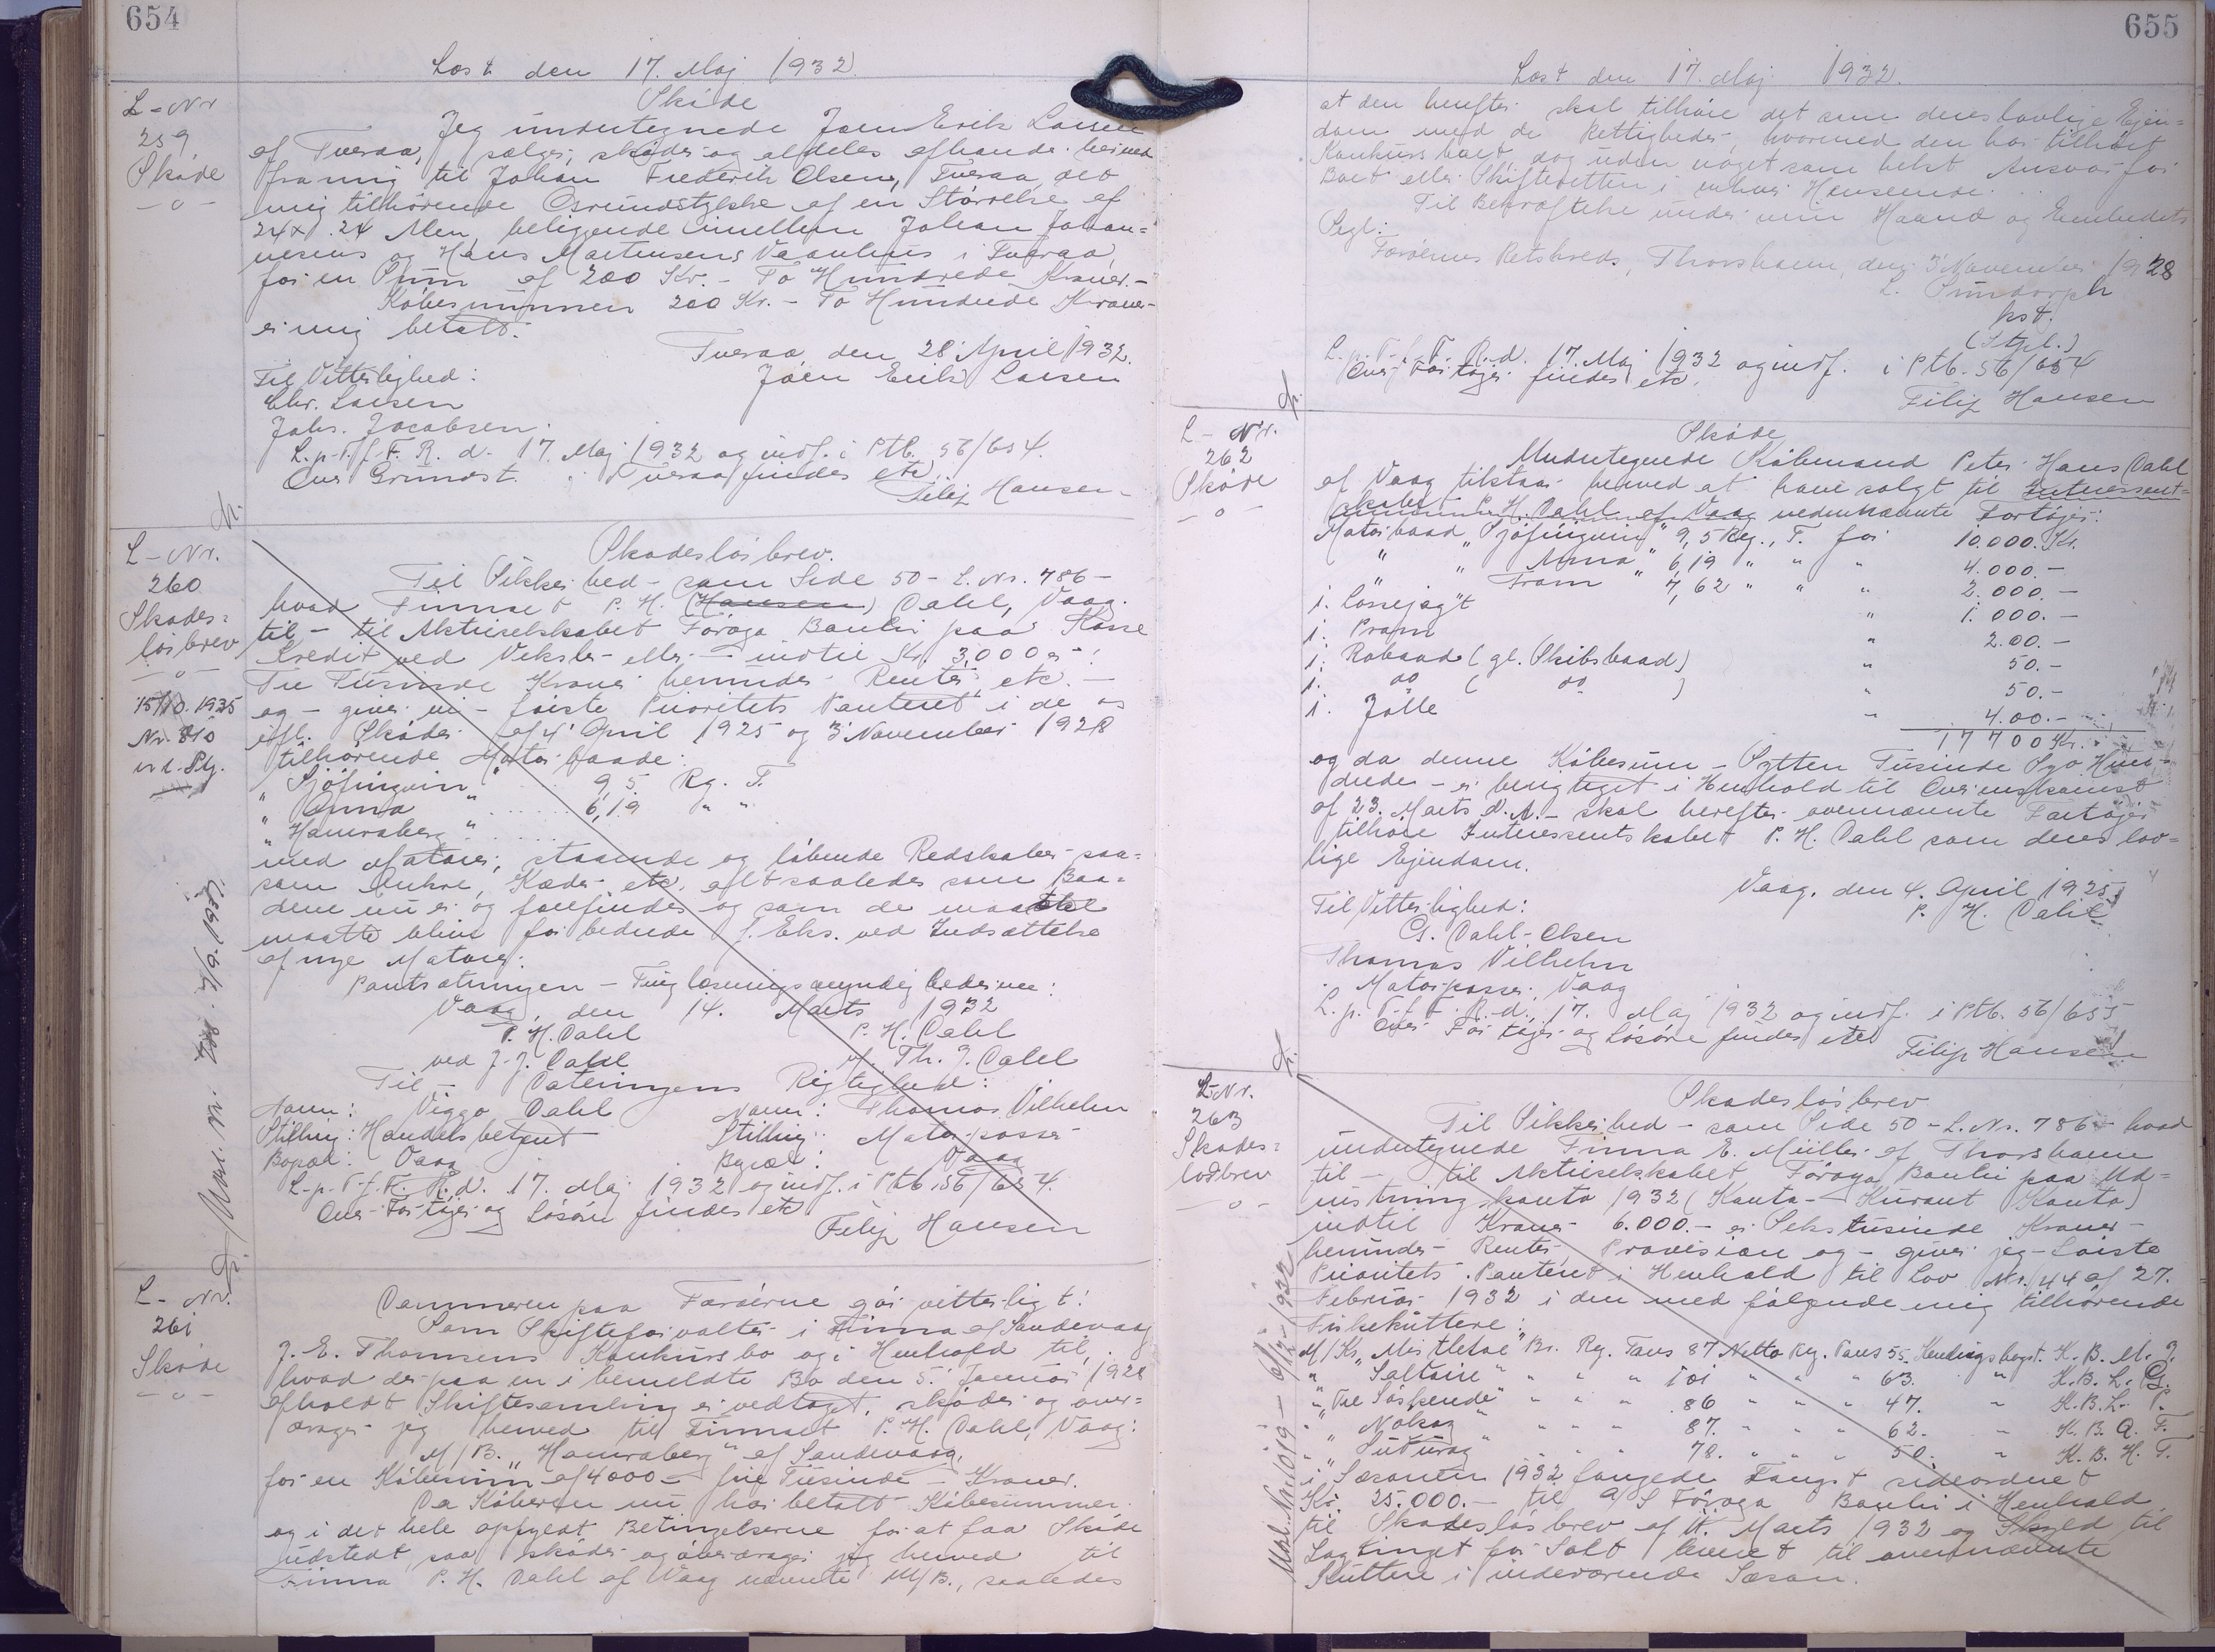 654
Læst den 17. Maj 1932.
L-Nr
259
Skøde
-o-
Skøde
Jeg undertegnede Joen Erik Larsen
af Tveraa, sælger, skøder og aldeles afhænder herved
fra mig til Johan Frederik Olsen, Tveraa det
mig tilhørende Grundstykke af en Størrelse af
24 x 24 Alen, beliggende imellem Johan Johan=
nesens og Hans Mortensens Vaanhus i Tveraa,
for en Sum af 200 Kr. - To Hundrede Kroner.-
Købesummen 200 Kr. - To Hundrede Kroner-
er mig betalt.
Tveraa, den 28' April 1932.
Til Vitterlighed:
Joen Erik Larsen
Chr. Larsen
Johs. Jacobsen.
L.p.T.f.F.R.d. 17. Maj 1932 og indf. i Ptb. 56/654.
Over Grundst. i Tveraa findes etc.
Filip Hansen-
L-Nr.
260
Skades=
løsbrev
-o-
15/10. 1935
Nr. 810
Skadesløsbrev.
Til Sikkerhed - som Side 50 - L.Nr. 786 -
hvad Firmaet P. H. (Hansen) Dahl, Vaag.
til - til Aktieselskabet Føroya Banki paa Kasse
Kredit ved Veksler eller - indtil Kr. 3,000 er:
Tre Tusinde Kroner herunder Renter etc. -
og - giver vi - første Prioritets Panteret i de os
ifl. Skøder af 4' April 1925 og 3' November 1928
tilhørende Motorbaade:
"Sjófuglurin" ... 9,5 Rg. T.
"Anna" ...... 6,19 " "
"Hamraberg" ....
med Motorer, staaende og løbende Redskaber saa=
som Ankre, Kæder etc. alt saaledes som Baa=
dene nu er og forefindes og som de maatte
maatte blive forbedrede f. Eks. ved Indsættelse
af nye Motorer.
Pantsætningen - Tinglæsningsmyndighederne:
Vaag, den 14. Marts 1932
P. H. Dahl P. H. Dahl
ved J. J. Dahl v/ Th. J. Dahl
Til - Dateringens Rigtighed:
Navn: Viggo Dahl Navn: Thomas Vilhelm
Stilling: Handelsbetjent Stilling: Motorpasser
Bopæl: Vaag Bopæl: Vaag
L.p.T.f.F.R.d. 17. Maj 1932 og indf. i Ptb. 56/654.
Over Fartøjer og Løsøre findes etc
Filip Hansen
L-Nr.
261
Skøde
-o-
Dommeren paa Færøerne gør vitterligt:
Som Skifteforvalter i Firma af Sandevaag
J. E. Thomsens Konkursbo og i Henhold til,
hvad der paa en i bemeldte Bo den 5' Januar 1928
afholdt Skiftesamling er vedtaget, skøder og over=
drager jeg herved til Firmaet P. H. Dahl, Vaag:
M/B. "Hamraberg" af Sandevaag,
for en Købesum af 4000 - fire Tusinde - Kroner.
Da Køberen nu har betalt Købesummen
og i det hele opfyldt Betingelserne for at faa Skøde
udstedt, saa skøder og overdrager jeg herved til
Firma P. H. Dahl af Waag nævnte M/B., saaledes
655
Læst den 17. Maj 1932.
at den herefter skal tilhøre det som deres lovlige Ejen=
dom med de Rettigheder, hvormed den har tilhørt
Konkursboet, dog uden noget som helst Ansvar for
Boet eller Skifteretten i enhver Henseende.
Til Bekræftelse under min Haand og Embedets
Segl:
Færøernes Retskreds, Thorshavn, den 3' November 1928
kst.
(Stpl.)
L.p.T.f.F.R.d. 17. Maj 1932 og indf. i Ptb. 56/654
Over Fartøjer findes etc.
Filip Hansen
L-Nr.
262
Skøde
-o-
Skøde
Undertegnede Købmand Peter Hans Dahl
af Vaag tilstaar herved at have solgt til Interessent=
skabet P. H. Dahl af Vaag nedennævnte Fartøjer:
Motorbaad "Sjófuglurin" 9,5 Reg. T. for 10.000 Kr.
" " Anna " 6,19 " " " 4.000.-
" Fram " 4,62 " " " 2.000.-
1. Lossejagt " 1.000.-
1. Pram " 200.-
1. Robaad (gl. Skibsbaad) " 50.-
1. do ( do ) " 50.-
1. Jolle " 400.-
17700 Kr.
og da denne Købesum - Sytten Tusinde Syv Hun=
drede - er berigtiget i Henhold til Overenskomst
af 23. Marts d. A. - skal herefter ovennævnte Fartøjer
tilhøre Interessentskabet P. H. Dahl som deres lov=
lige Ejendom.
Vaag, den 4. April 1925
Til Vitterlighed: P. H. Dahl
G. Dahl-Olsen
Thomas Vilhelm
Motorpasser, Vaag
L.p.T.f.F.R.d. 17. Maj 1932 og indf. i Ptb. 56/655
Over Fartøjer og Løsøre findes etc
Filip Hansen
L-Nr.
263
Skades=
løsbrev
-o-
Skadesløsbrev
Til Sikkerhed - som Side 50 - L.Nr. 786 - hvad
undertegnede Firma E. Müller af Thorshavn
til - til Aktieselskabet Føroya Banki paa Ud=
rustningskonto 1932 (Konto-Kurant Konto)
indtil Kroner 6.000.- er Sekstusinde Kroner -
herunder Renter, Provision og - giver jeg - første
Prioritets Panteret i Henhold til Lov Nr. 44 af 27.
Februar 1932 i den med følgende mig tilhørende
Fiskekuttere:
M/Kr. "Misthetoe" Br. Reg. Tons 87 Netto Reg. Tons 55. Kendingsbogst. K. B. M. J.
" "Saltaire" " " " 101 " " " 63. " K. B. L. G.
" "Tre Søskende" " " " 86 " " " 47. " K. B. L. P.
" "Nolsoy" " " " 87. " " " 62. " K. B. Q. F.
" "Suduroy" " " " 78. " " " 50. " K. B. H. T.
i Sæsonen 1932 fangede Fangst sideordnet
Kr. 25.000.- til A/S Føroya Banki i Henhold
til Skadesløsbrev af Marts 1932 og Skyld til
Lagtinget for Salt leveret til ovennævnte
Kuttere i indeværende Sæson.